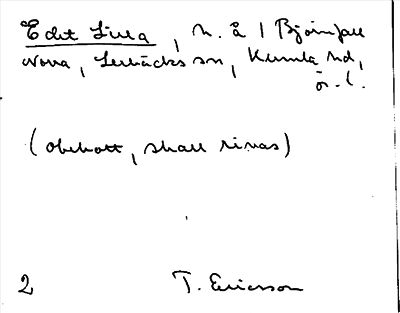 Edet Lilla, n. å / Björnfall
Norra, Lerbäcks sn, Kumla hd,
ö. l.
(obebott, skall rivas)
2 T. Ericsson